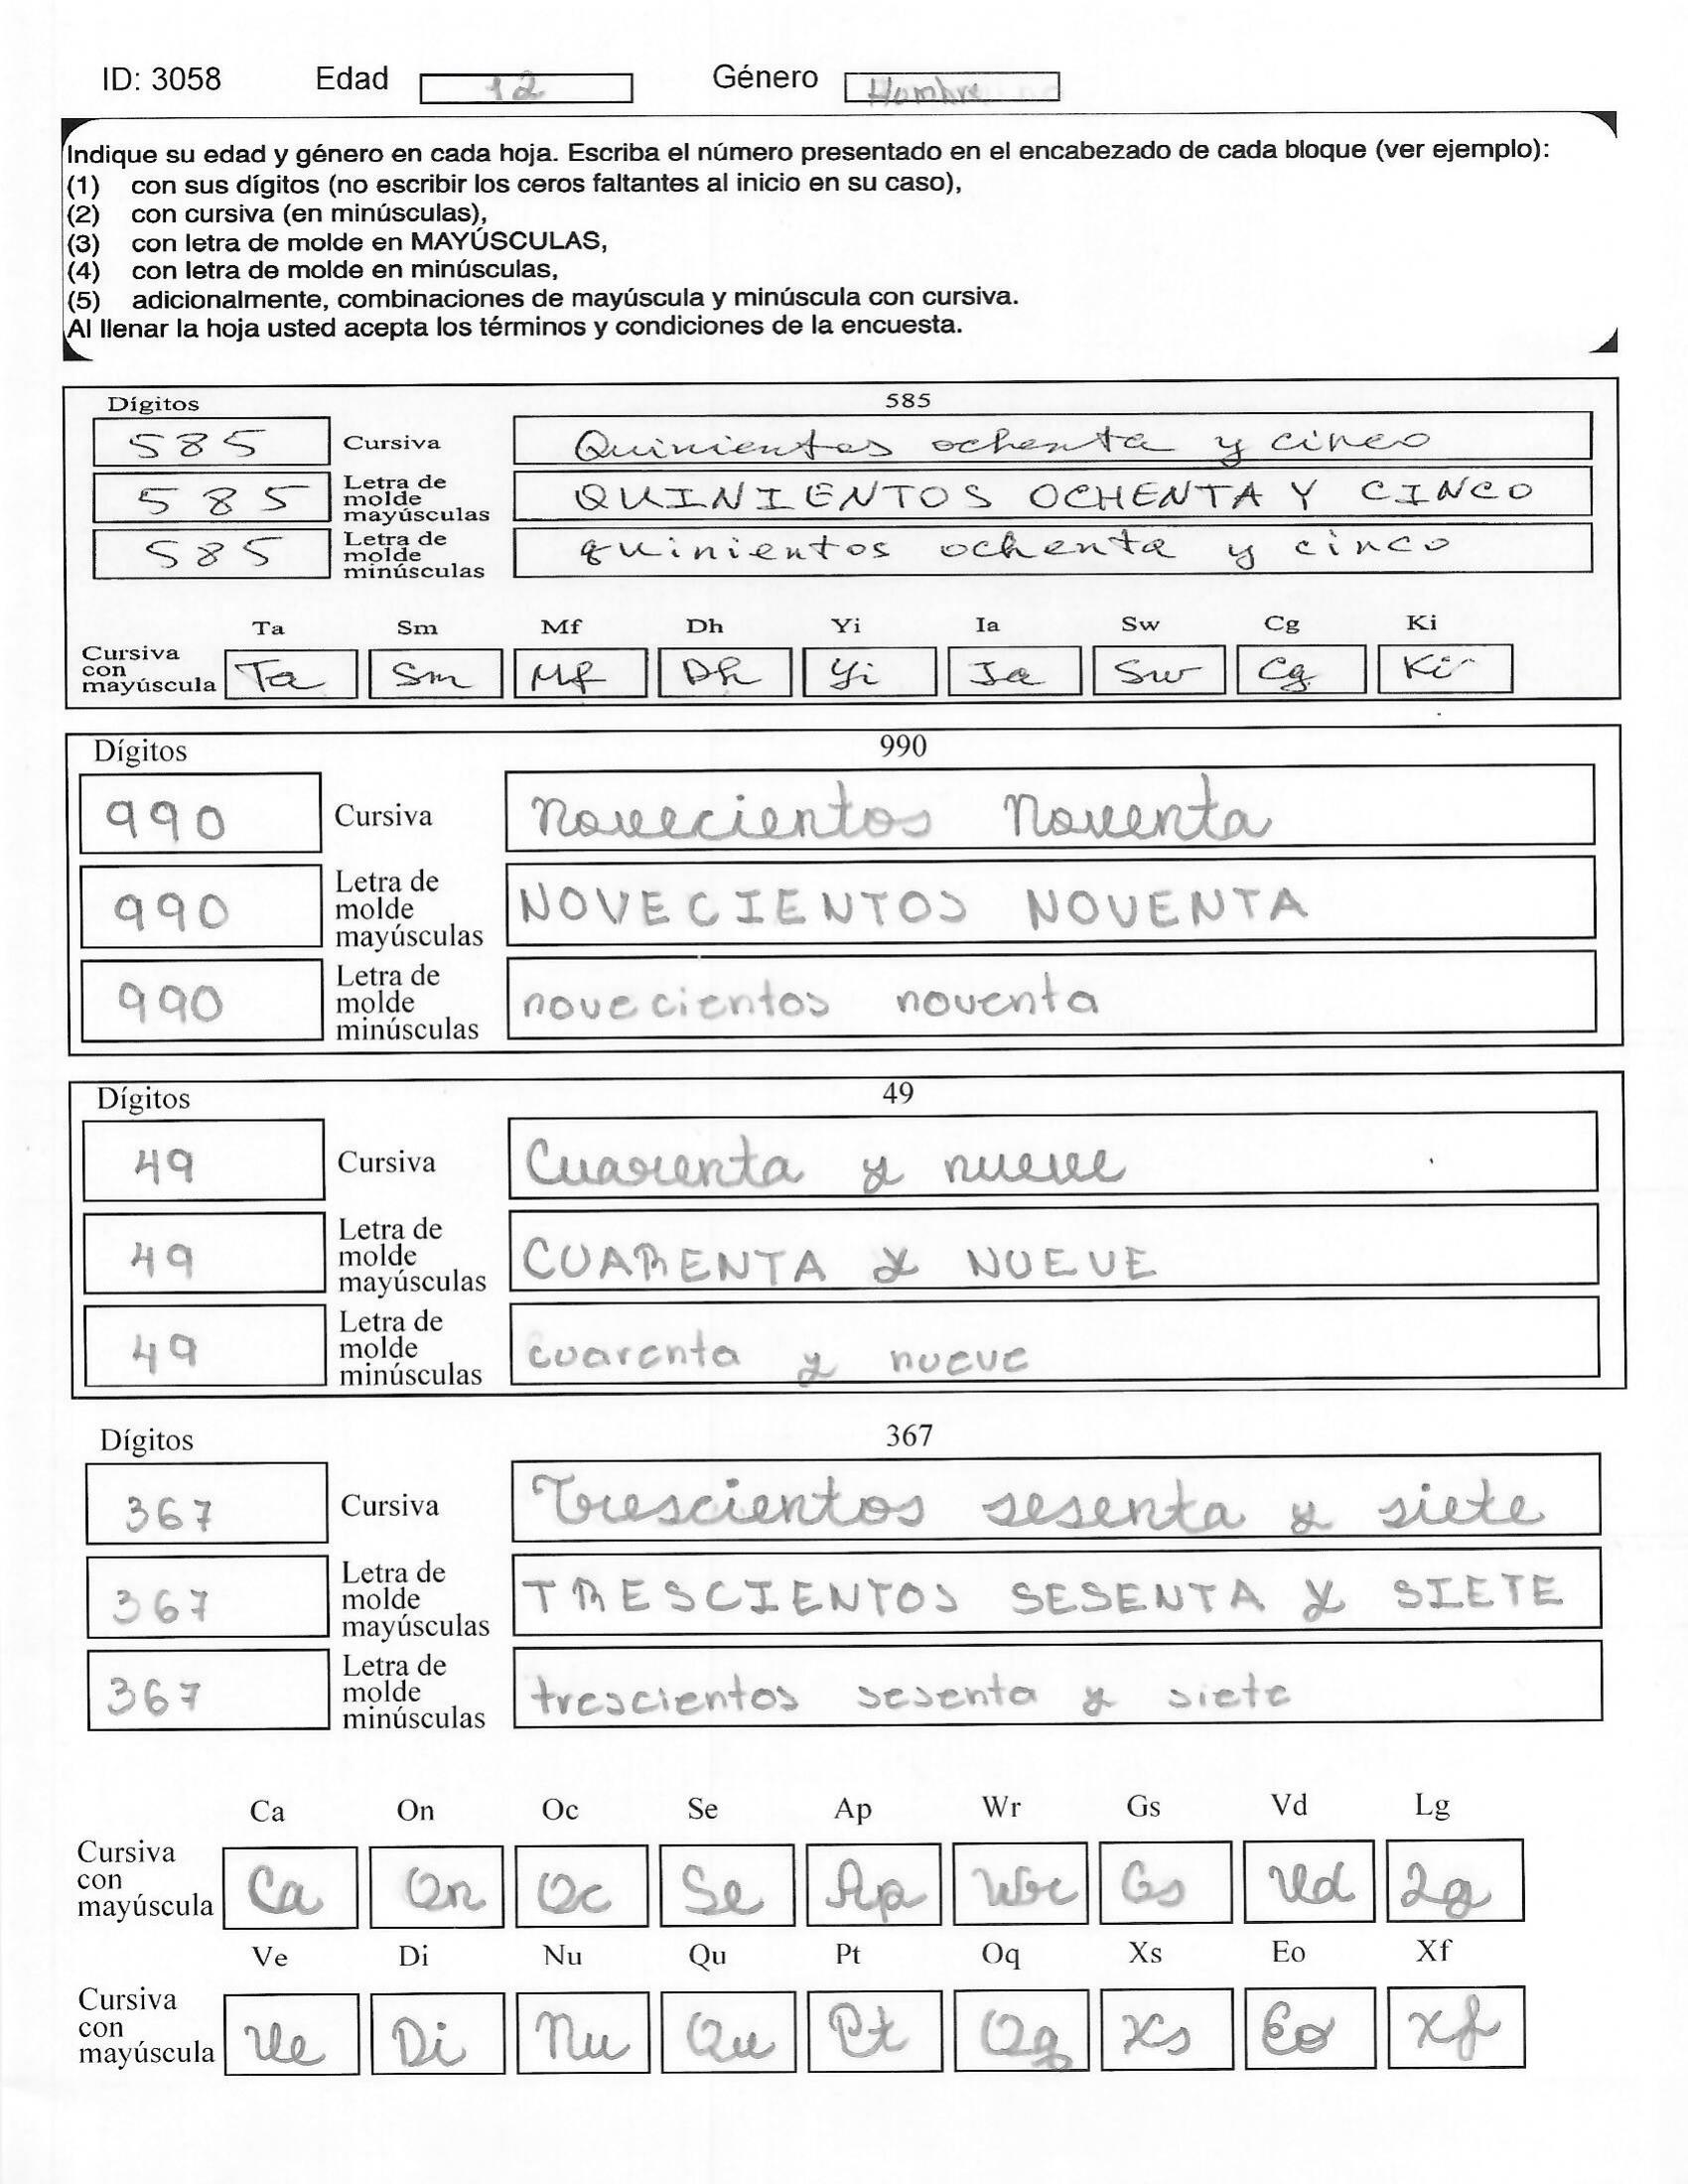 ID: 3058 Edad 12 Género Hombre
Indique su edad y género en cada hoja. Escriba el número presentado en el encabezado de cada bloque (ver ejemplo):
(1) con sus dígitos (no escribir los ceros faltantes al inicio en su caso),
(2) con cursiva (en minúsculas),
(3) con letra de molde en MAYÚSCULAS,
(4) con letra de molde en minúsculas,
(5) adicionalmente, combinaciones de mayúscula y minúscula con cursiva.
Al llenar la hoja usted acepta los términos y condiciones de la encuesta.
Dígitos 585
585 Cursiva Quinientos ochenta y cinco
585 Letra de molde mayúsculas QUINIENTOS OCHENTA Y CINCO
585 Letra de molde minúsculas quinientos ochenta y cinco
Ta Sm Mf Dh Yi Ia Sw Cg Ki
Cursiva con mayúscula Ta Sm Mf Dh Yi Ia Sw Cg Ki
Dígitos 990
990 Cursiva Novecientos Noventa
990 Letra de molde mayúsculas NOVECIENTOS NOVENTA
990 Letra de molde minúsculas novecientos noventa
Dígitos 49
49 Cursiva Cuarenta y nueve
49 Letra de molde mayúsculas CUARENTA Y NUEVE
49 Letra de molde minúsculas cuarenta y nueve
Dígitos 367
367 Cursiva Trescientos sesenta y siete
367 Letra de molde mayúsculas TRESCIENTOS SESENTA Y SIETE
367 Letra de molde minúsculas trescientos sesenta y siete
Ca On Oc Se Ap Wr Gs Vd Lg
Cursiva con mayúscula Ca On Oc Se Ap Wr Gs Vd Lg
Ve Di Nu Qu Pt Oq Xs Eo Xf
Cursiva con mayúscula Ve Di Nu Qu Pt Oq Xs Eo Xf